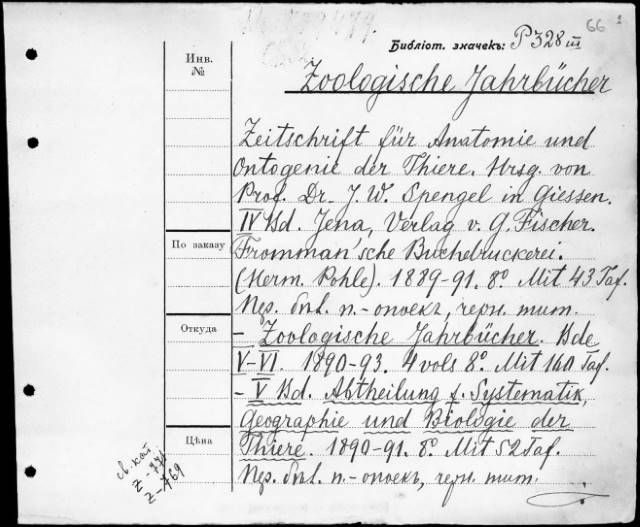 66
Библіот. значекъ: P 328 III
Инв.
№
Zoologische Jahrbücher
Zeitschrift für Anatomie und
Ontogenie der Thiere. Hrsg. von
Prof. Dr. J. W. Spengel in Giessen.
IV Bd. Jena, Verlag v. G. Fischer.
По заказу
Fromman'sche Buchdruckerei.
(Herm. Pohle). 1889-91. 8º. Mit 43 Taf.
Пер. бѣл. п.-опоекъ, черн. тит.
Откуда
- Zoologische Jahrbücher. Bde
V-VI. 1890-93. 4 vols 8º. Mit 160 Taf.
- V Bd. Abtheilung f. Systematik,
Geographie und Biologie der
Цѣна
Thiere. 1890-91. 8º. Mit 52 Taf.
Пер. бѣл. п.-опоекъ, черн. тит.
св. кат
Z-769